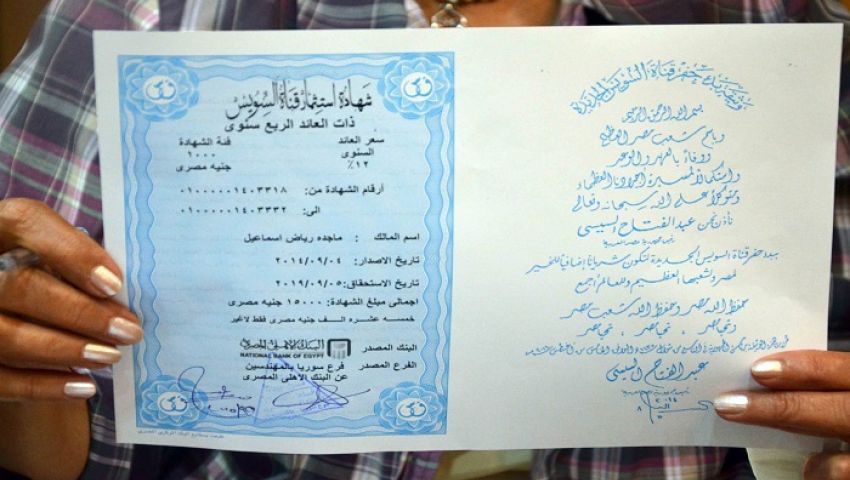 شهادة استثمار قناة السويس
ذات العائد الربع سنوى
سعر العائد السنوى ١٢٪
فئة الشهادة ١٠٠٠ جنيه مصرى
أرقام الشهادة من: ٠١٠٠٠٠٠٠١٤٠٣٣١٨
الى: ٠١٠٠٠٠٠٠١٤٠٣٣٣٢
اسم المالك : ماجده رياض اسماعيل
تاريخ الاصدار: ٢٠١٤/٠٩/٠٤
تاريخ الاستحقاق: ٢٠١٩/٠٩/٠٥
اجمالى مبلغ الشهادة: ١٥٠٠٠ جنيه مصرى
خمسه عشره الف جنيه مصرى فقط لاغير
البنك المصدر البنك الأهلي المصري
NATIONAL BANK OF EGYPT
الفرع المصدر فرع سوريا بالمهندسين
عن البنك الأهلى المصرى
حفر قناة السويس الجديدة
بسم الله الرحمن الرحيم
وباسم شعب مصر العظيم
ووفاءً بالعهد والوعد
واستكمالاً لمسيرة أجدادنا العظماء
وتوكلاً على الله سبحانه وتعالى
نأذن نحن عبد الفتاح السيسي
رئيس جمهورية مصر العربية
ببدء حفر قناة السويس الجديدة لتكون شرياناً إضافياً للخير
لمصر ولشعبها العظيم وللعالم أجمع
حفظ الله مصر وحفظ الله شعب مصر
وتحيا مصر , تحيا مصر , تحيا مصر
عبد الفتاح السيسي